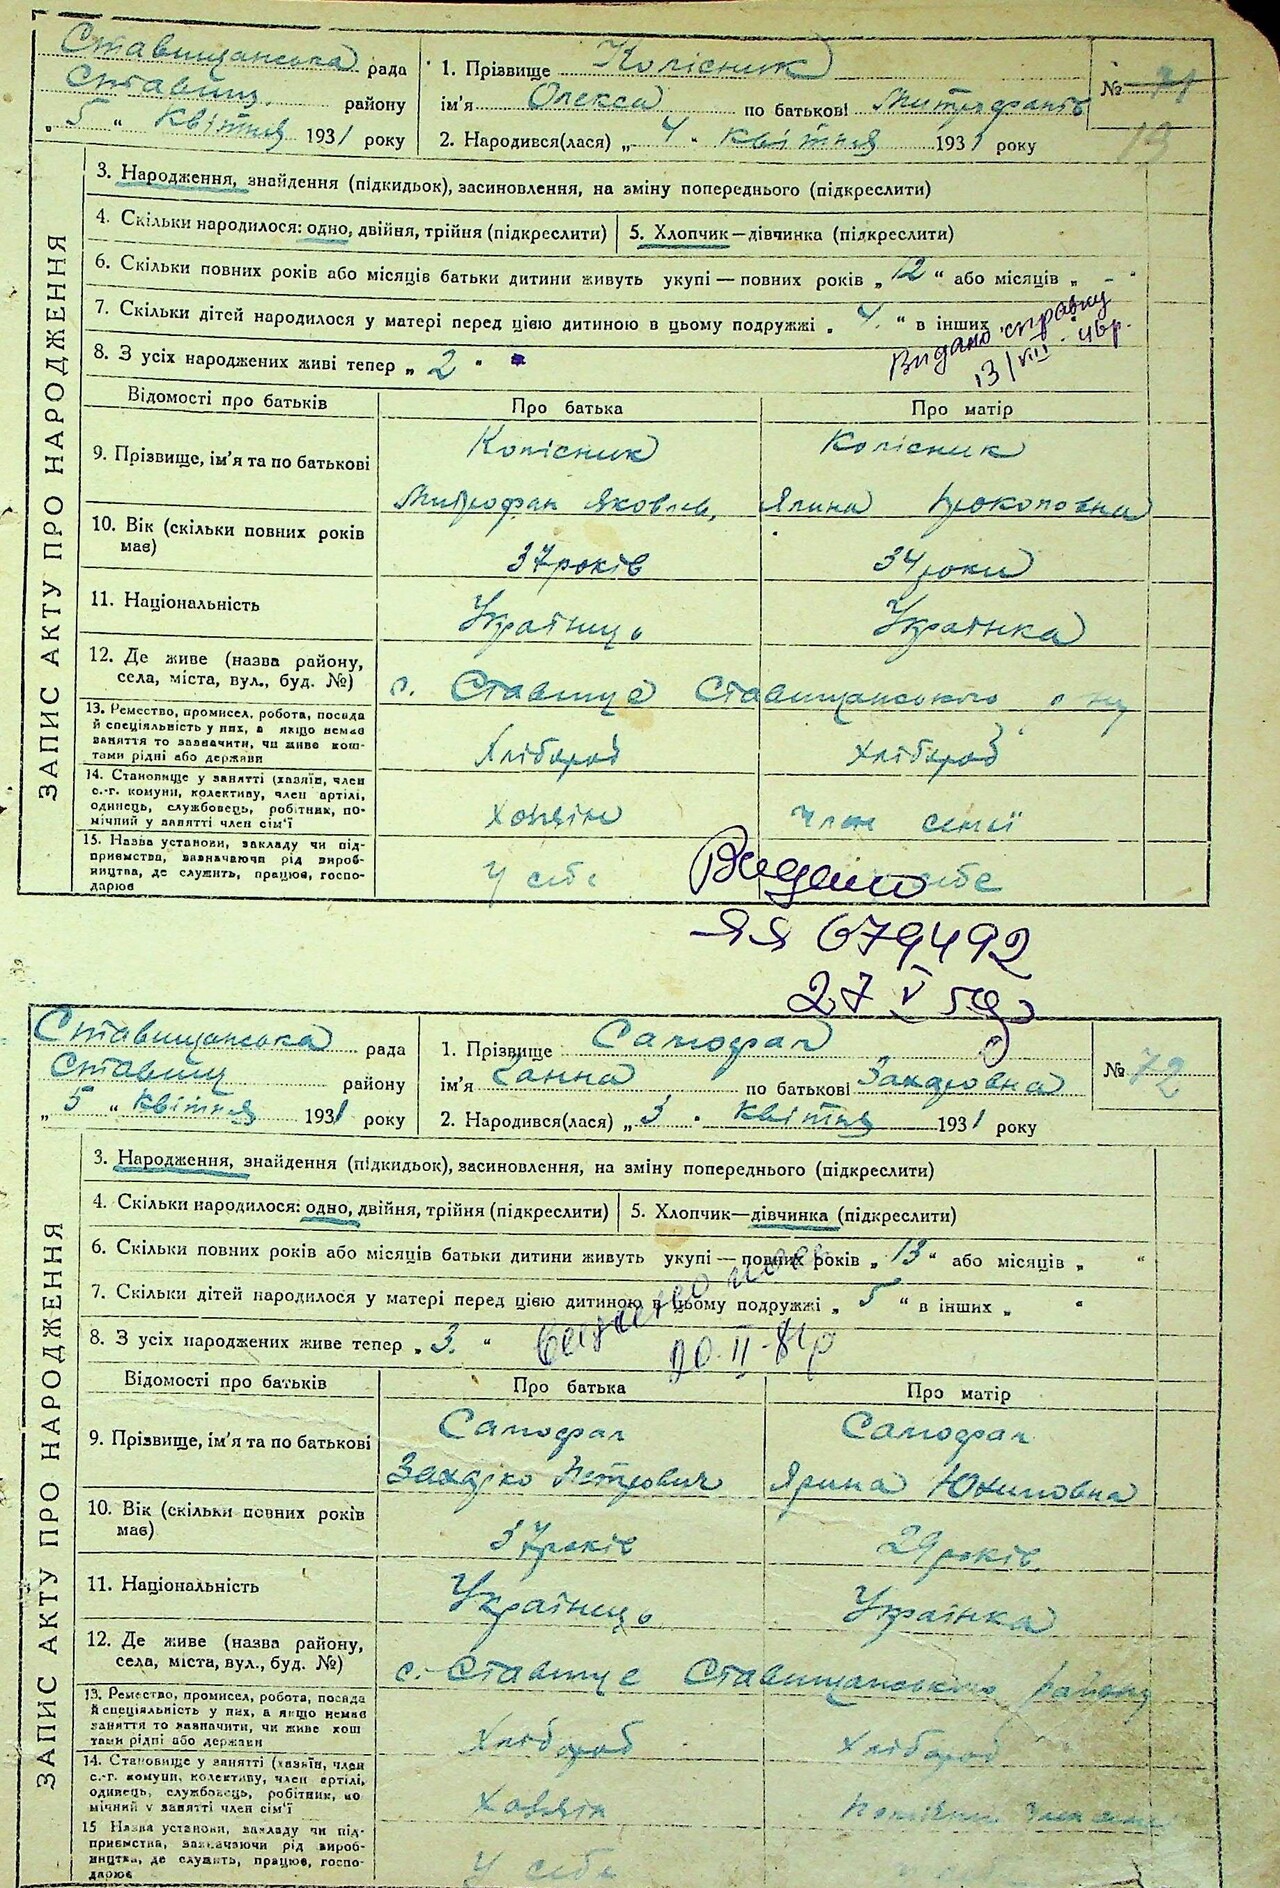 Ставищанська рада
Ставищ. району
„ 5 “ Квітня 1931 року
1. Прізвище Колісник
ім'я Олекса по батькові Митрофанів
2. Народився(лася) „ 4 . квітня 1931 року
№ 71
13
ЗАПИС АКТУ ПРО НАРОДЖЕННЯ
3. Народження, знайдення (підкидьок), засиновлення, на зміну попереднього (підкреслити)
4. Скільки народилося: одно, двійня, трійня (підкреслити) 5. Хлопчик—дівчинка (підкреслити)
6. Скільки повних років або місяців батьки дитини живуть укупі — повних років „ 12 “ або місяців „ - “
7. Скільки дітей народилося у матері перед цією дитиною в цьому подружжі „ 4. “ в інших
Видано справку
13/VIII 4
8. З усіх народжених живі тепер „ 2 “
Відомості про батьків Про батька Про матір
9. Прізвище, ім'я та по батькові Колісник Колісник
Митрофан Яковлев. Ялина Прокоповна
10. Вік (скільки повних років має) 37 років 34 роки
11. Національність Українець Українка
12. Де живе (назва району, села, міста, вул., буд. №) с. Ставище Ставищанського
13. Ремество, промисел, робота, посада й спеціяльність у них, а якщо немає заняття то зазначити, чи живе коштами рідні або держави Хлібороб Хлібороб
14. Становище у занятті (хазяїн, член с.-г. комуни, колективу, член артілі, одинець, службовець, робітник, помічний у занятті член сім'ї Хазяїн член семії
15. Назва установи, закладу чи підприємства, вазначаючи рід виробництва, де служить, працює, господарює У себе себе
Видано
ЯЯ 679492
27 V 59р
Ставищанська рада
Ставищ району
„ 5 “ квітня 1931 року
1. Прізвище Самофал
ім'я Ганна по батькові Захаровна
2. Народився(лася) „ 3 . квітня 1931 року
№ 72
ЗАПИС АКТУ ПРО НАРОДЖЕННЯ
3. Народження, знайдення (підкидьок), засиновлення, на зміну попереднього (підкреслити)
4. Скільки народилося: одно, двійня, трійня (підкреслити) 5. Хлопчик—дівчинка (підкреслити)
6. Скільки повних років або місяців батьки дитини живуть укупі — повних років „ 13 “ або місяців „ “
7. Скільки дітей народилося у матері перед цією дитиною в цьому подружжі „ 5 “ в інших „ “
8. З усіх народжених живе тепер „ 3. “
20.II-81р
Відомості про батьків Про батька Про матір
9. Прізвище, ім'я та по батькові Самофал Самофал
Захарко Петрович Ярина Юхимовна
10. Вік (скільки повних років має) 37 років 29 років
11. Національність Українець Українка
12. Де живе (назва району, села, міста, вул., буд. №) с. Ставище Ставищанського району
13. Ремество, промисел, робота, посада й спеціяльність у них, а якщо немає заняття то вазначити, чи живе коштами рідні або держави Хлібороб Хлібороб
14. Становище у занятті (хазяїн, член с.-г. комуни, колективу, член артілі, одинець, службовець, робітник, помічний у занятті член сім'ї Хазяїн
15 Назва установи, закладу чи підприємства, зазначаючи рід виробництва, де служить, працює, господарює У себе